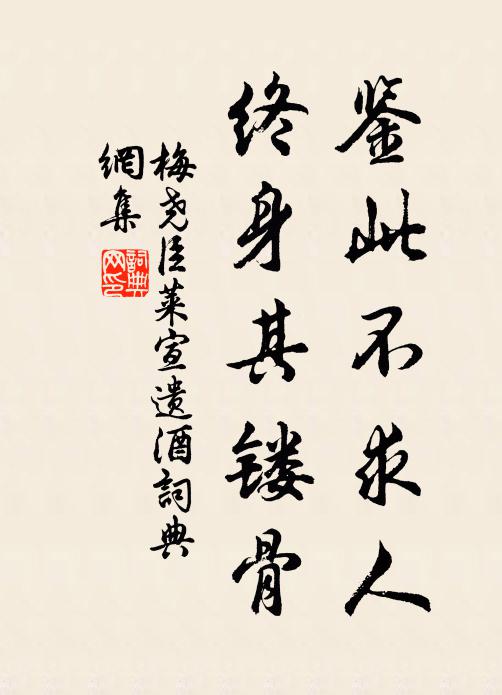 鉴此不求人
终身其镂骨
梅尧臣莱宣遗酒詞典
網集
詞典网印